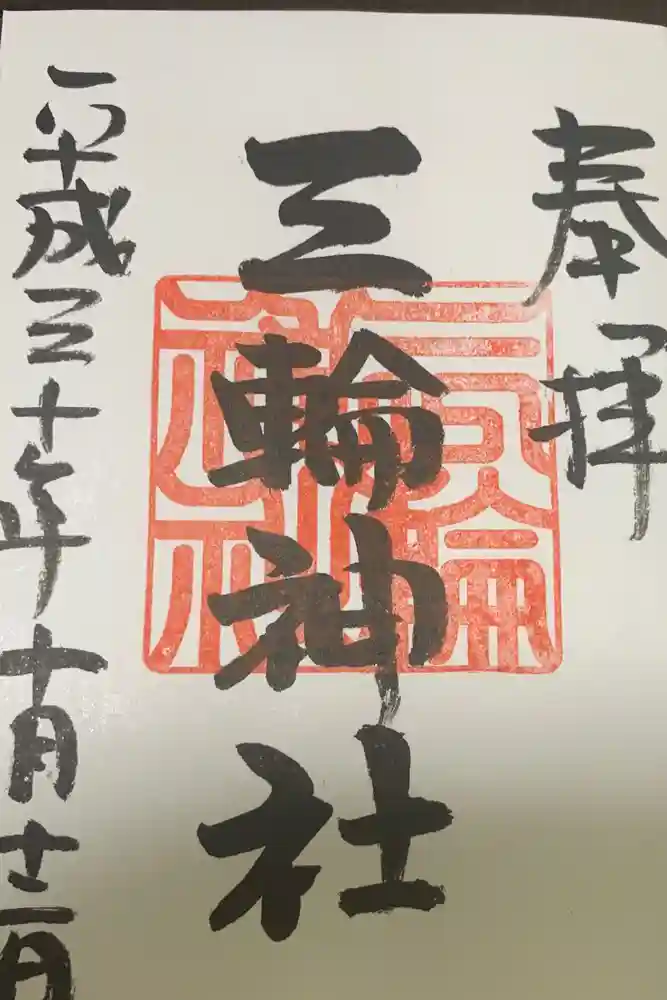 奉拝
三輪神社
平成三十年十月十二日
三輪
神社